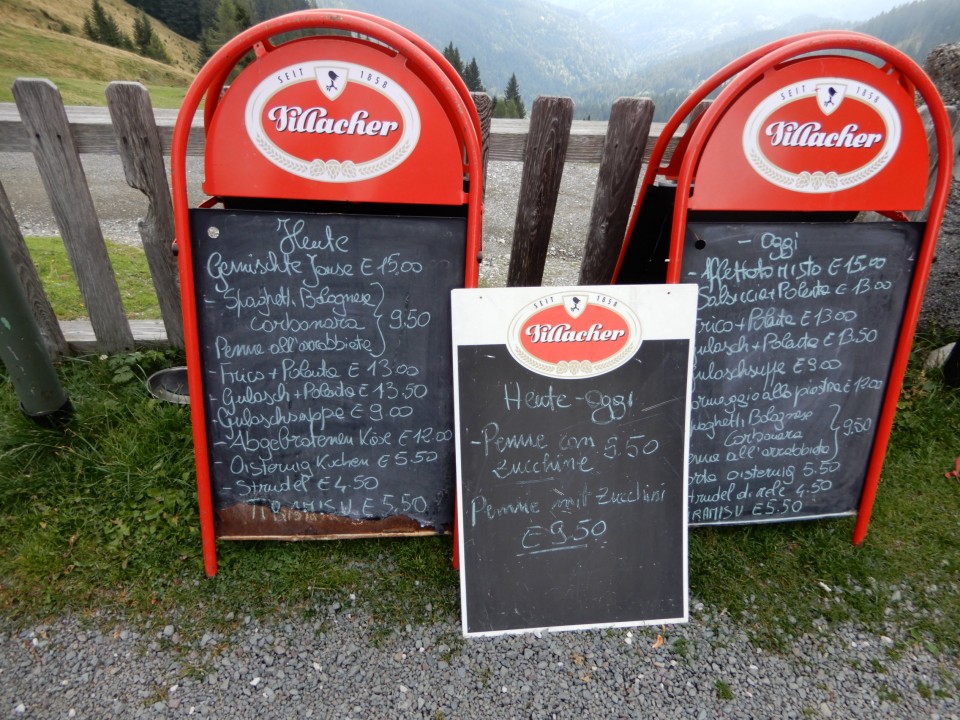 SEIT 1858
Villacher
Heute
Gemischte Jause € 15.00
- Spaghetti Bolognese
Carbonara } 9.50
Penne all'arrabbiata
- Frico + Polenta € 13.00
- Gulasch + Polenta € 13.50
- Gulaschsuppe € 9.00
- Abgebrotenen Käse € 12.00
- Oisternig Kuchen € 5.50
- Strudel € 4.50
TIRAMISU € 5.50
SEIT 1858
Villacher
Heute - Oggi
- Penne con 9.50
zucchine
Penne mit Zucchini
€ 9.50
SEIT 1858
Villacher
- Oggi
- Affettato misto € 15.00
Salsiccia + Polenta € 13.00
Frico + Polenta € 13.00
Gulasch + Polenta € 13.50
Gulaschsuppe € 9.00
Formaggio alla piastra € 12.00
Spaghetti Bolognese
Carbonara } 9.50
Penne all'arrabbiata
Torta Oisternig 5.50
Strudel di mele 4.50
TIRAMISU € 5.50